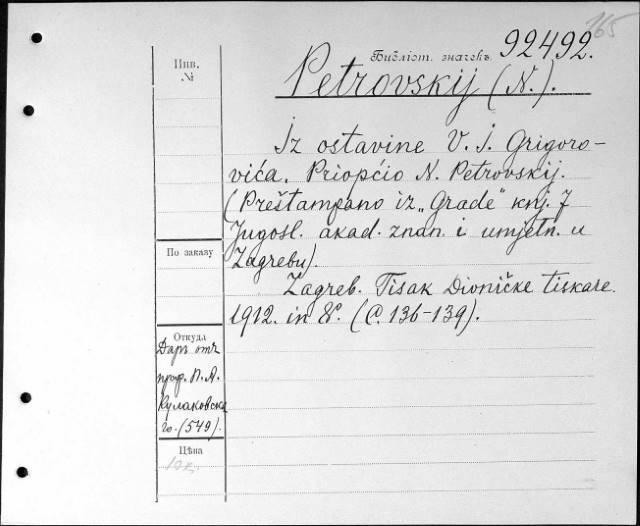 165
Библіот. значекъ 92492.
Petrovskij (N.).
Инв.
№
Iz ostavine V. I. Grigoro-
vića. Priopćio N. Petrovskij.
(Preštampano iz „Grade" knj. 7
Jugosl. akad. znan. i umjetn. u
Zagrebu).
Zagreb. Tisak Dioničke tiskare.
1912. in 8º. (С. 136-139).
По заказу
Откуда
Даръ отъ
проф. П. А.
Кулаковска
го. (549).
Цѣна
10к.